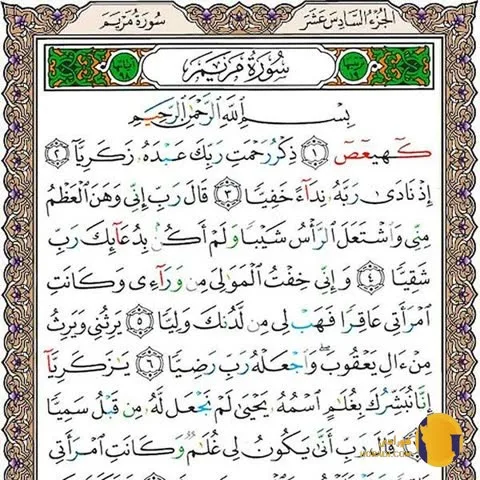 سُورَةُ مَرْيَمَ الجُزْءُ السَّادِسَ عَشَرَ
سُورَةُ مَرْيَمَ
بِسْمِ اللَّهِ الرَّحْمَٰنِ الرَّحِيمِ
كٓهيعٓصٓ ١ ذِكْرُ رَحْمَتِ رَبِّكَ عَبْدَهُۥ زَكَرِيَّآ ٢
إِذْ نَادَىٰ رَبَّهُۥ نِدَآءً خَفِيًّا ٣ قَالَ رَبِّ إِنِّى وَهَنَ ٱلْعَظْمُ
مِنِّى وَٱشْتَعَلَ ٱلرَّأْسُ شَيْبًا وَلَمْ أَكُنۢ بِدُعَآئِكَ رَبِّ
شَقِيًّا ٤ وَإِنِّى خِفْتُ ٱلْمَوَٰلِىَ مِن وَرَآءِى وَكَانَتِ
ٱمْرَأَتِى عَاقِرًا فَهَبْ لِى مِن لَّدُنكَ وَلِيًّا ٥ يَرِثُنِى وَيَرِثُ
مِنْ ءَالِ يَعْقُوبَ ۖ وَٱجْعَلْهُ رَبِّ رَضِيًّا ٦ يَٰزَكَرِيَّآ
إِنَّا نُبَشِّرُكَ بِغُلَٰمٍ ٱسْمُهُۥ يَحْيَىٰ لَمْ نَجْعَل لَّهُۥ مِن قَبْلُ سَمِيًّا
قَالَ رَبِّ أَنَّىٰ يَكُونُ لِى غُلَٰمٌ وَكَانَتِ ٱمْرَأَتِى